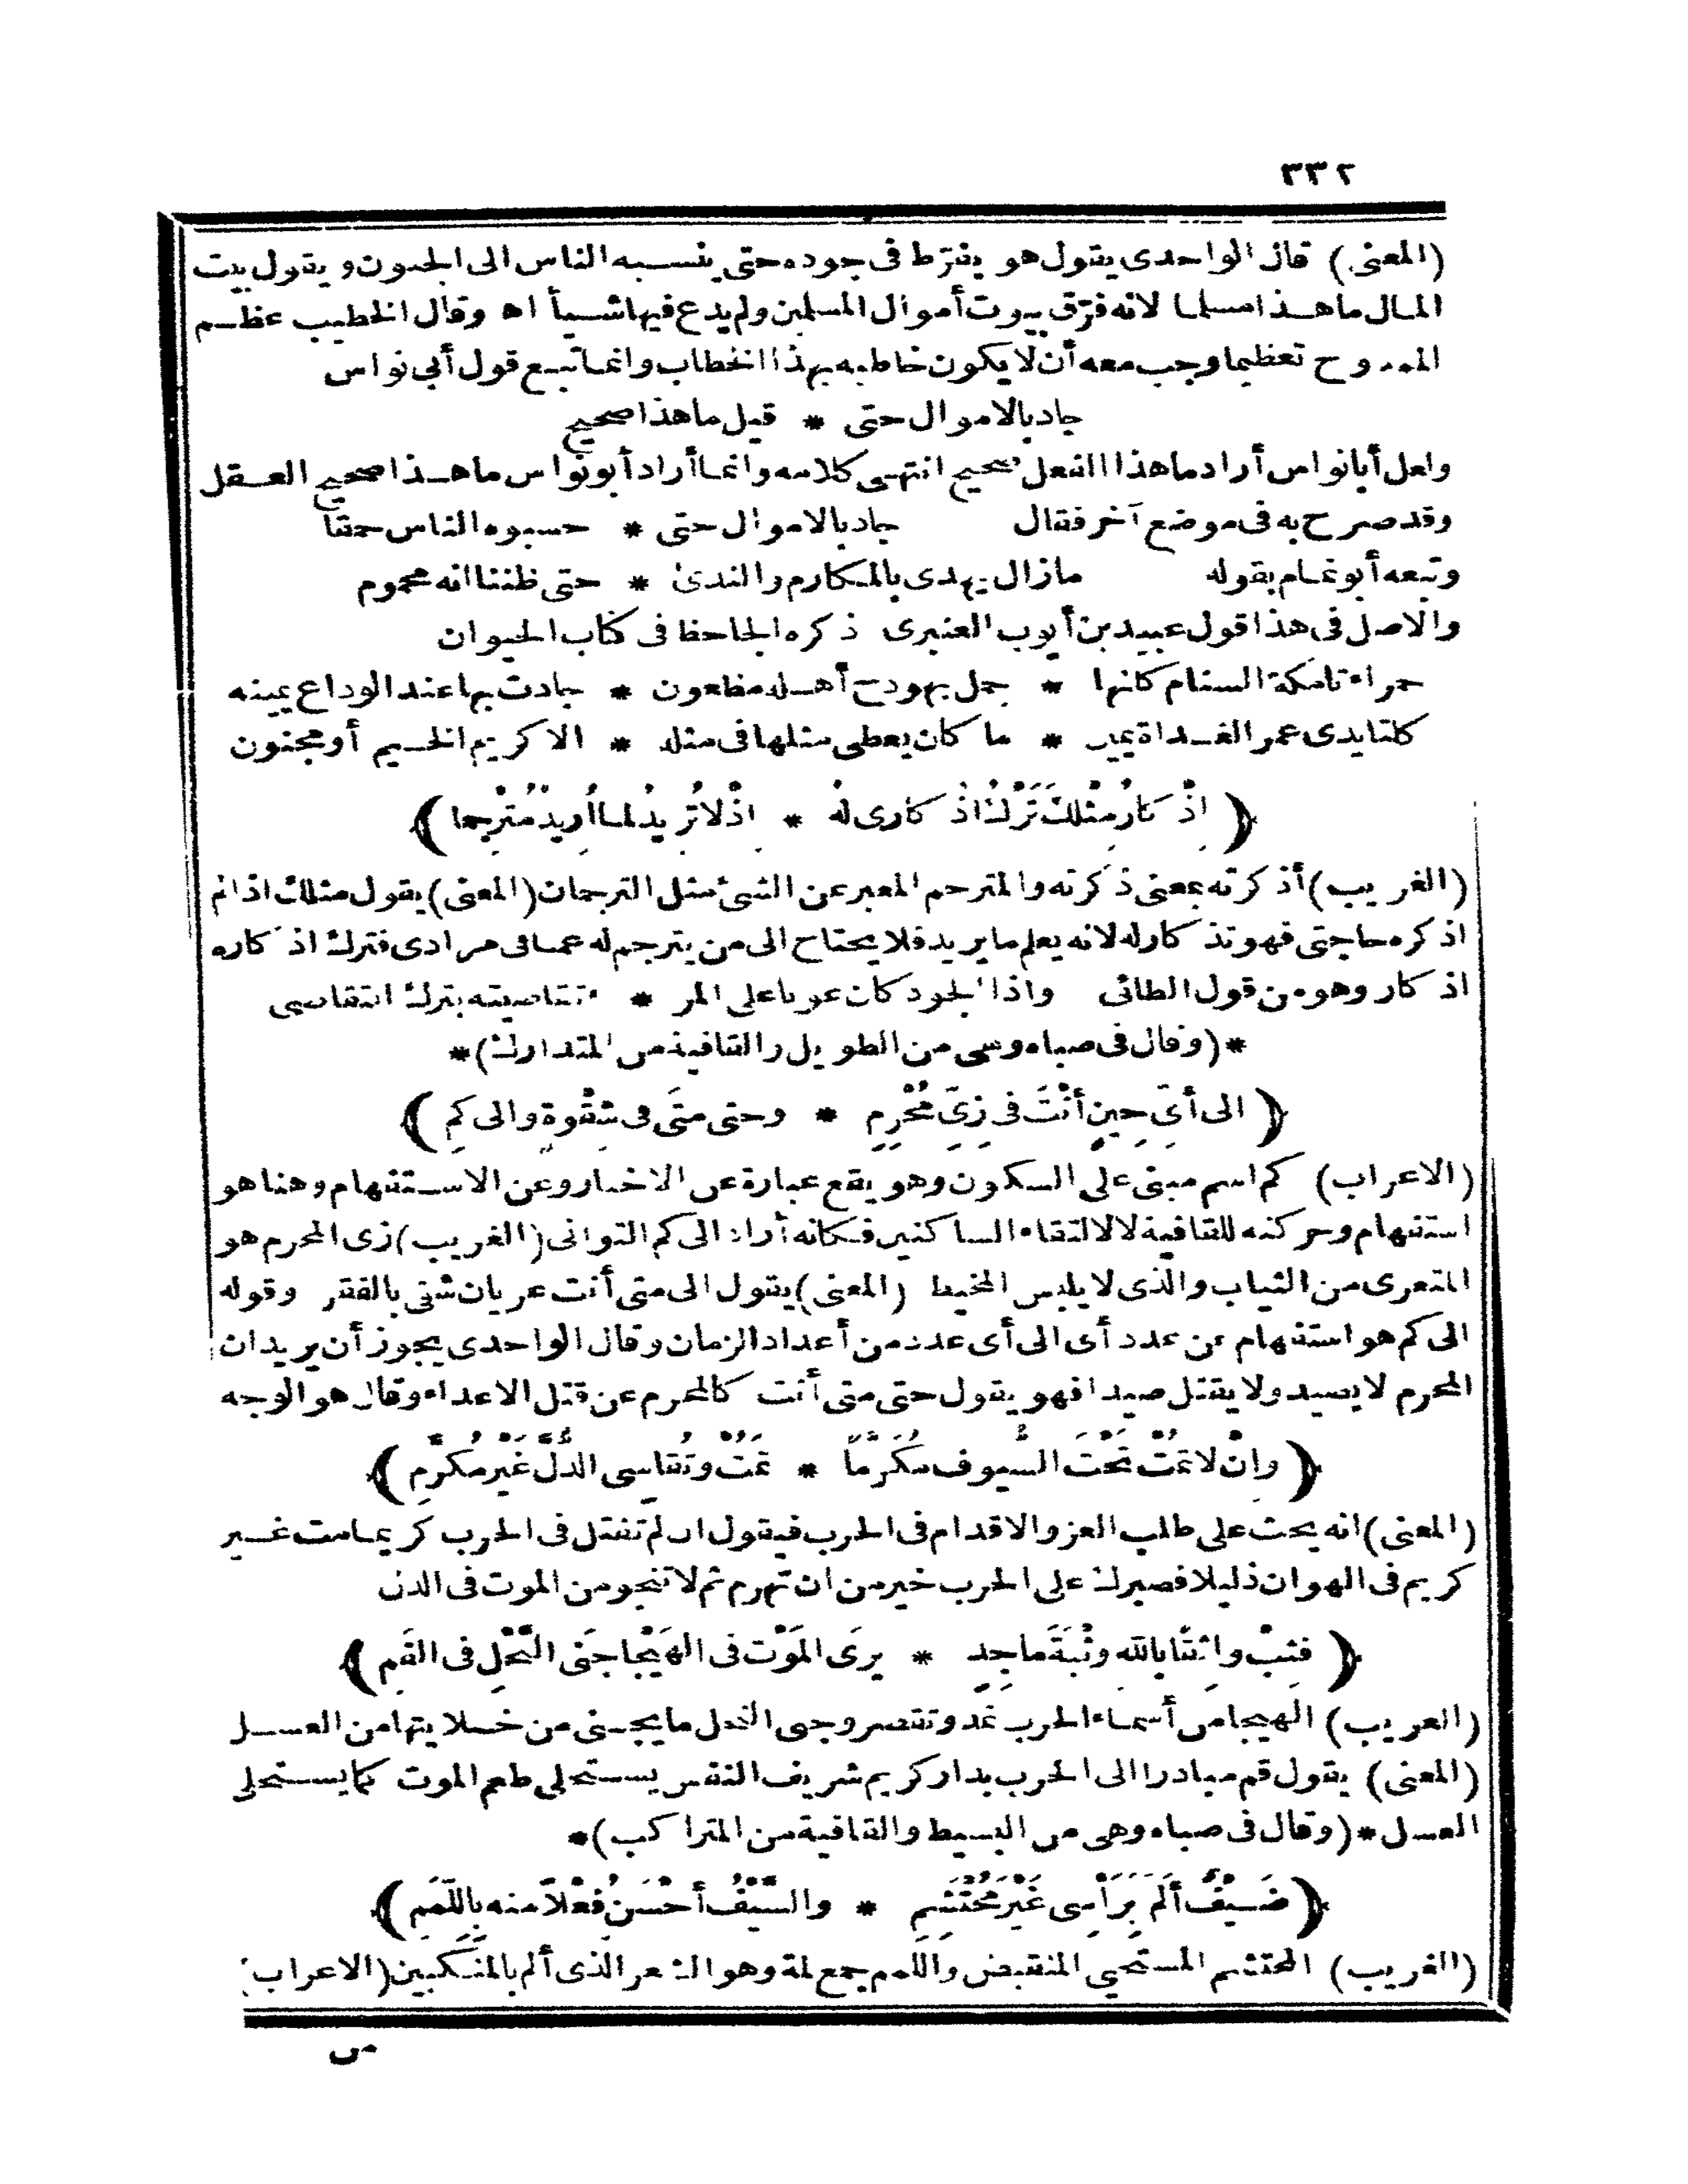 ٣٣٢
(المعنى) قال الواحدى يقول هو يفرّط فى جوده حتى ينسبه الناس الى الجنون ويقول بيت
المال ما هذا مسلما لانه فرّق بيوت أموال المسلمين ولم يدع فيها شيأ اه وقال الخطيب عظم
الممدوح تعظيما وجب معه أن لا يكون خاطبه بهذا الخطاب وانما تبع قول أبى نواس
جاد بالاموال حتى * قيل ما هذا صحيح
ولعل أبا نواس أراد ما هذا الفعل صحيح انتهى كلامه وانما أراد أبو نواس ما هذا صحيح العقل
وقد صرح به فى موضع آخر فقال جاد بالاموال حتى * حسبوه الناس حمقا
وتبعه أبو تمام بقوله مازال يهدى بالمكارم والندى * حتى ظننا انه محموم
والاصل فى هذا قول عبيد بن أيوب العنبرى ذكره الجاحظ فى كتاب الحيوان
حمراء تامكة السنام كانها * جمل بهودج أهله مظعون * جادت بها عند الوداع يمينه
كلتا يدى عمر الغداة يمين * ما كان يعطى مثلها فى مثله * الا كريم الخيم أو مجنون
﴿ اِذْكارُ مِثْلِكَ تَرْكُ اِذْكارى لَهُ * اِذْ لا تُرِيدُ لما أُرِيدُ مُتَرْجِما ﴾
(الغريب) أذكرته بمعنى ذكرته والمترجم المعبر عن الشئ مثل الترجمان (المعنى) يقول مثلك اذا لم
اذكره حاجتى فهو تذكار له لانه يعلم ما يريد فلا يحتاج الى من يترجم له عما فى مرادى فترك اذكاره
اذكار وهو من قول الطائى واذا الجود كان عونا على المر * ء تقاضيته بترك التقاضى
*(وقال فى صباه وهى من الطويل والقافية من المتدارك)*
﴿ الى أىِّ حِينٍ أنْتَ فى زِىِّ مُحْرِمِ * وحتى متَى فى شِقْوةٍ والى كمِ ﴾
(الاعراب) كم اسم مبنى على السكون وهو يقع عبارة عن الاخبار وعن الاستفهام وهنا هو
استفهام وحركته للقافية لا لالتقاء الساكنين فكانه أراد الى كم التوانى (الغريب) زى المحرم هو
المتعرى من الثياب والذى لا يلبس المخيط (المعنى) يقول الى متى أنت عريان شقى بالفقر وقوله
الى كم هو استفهام عن عدد أى الى أى عدد من أعداد الزمان وقال الواحدى يجوز أن يريد ان
المحرم لا يصيد ولا يقتل صيدا فهو يقول حتى متى أنت كالمحرم عن قتل الاعداء وقال هو الوجه
﴿ واِنْ لا تَمُتْ تَحْتَ السُّيوف مُكَرَّمًا * تَمُتْ وتُقاسِى الذُّلَّ غَيْرَ مُكَرَّمِ ﴾
(المعنى) انه يحث على طلب العز والاقدام فى الحرب فيقول ان لم تقتل فى الحرب كريما مت غير
كريم فى الهوان ذليلا فصبرك على الحرب خير من ان تهرم ثم لا تنجو من الموت فى الذل
﴿ فثِبْ واثقًا بالله وثْبَةَ ماجِدٍ * يرَى المَوْتَ فى الهَيْجا جَنَى النَّحْلِ فى الفَمِ ﴾
(الغريب) الهيجا من أسماء الحرب تمد وتقصر وجنى النحل ما يجنى من خلايتها من العسل
(المعنى) يقول قم مبادرا الى الحرب بدار كريم شريف النفس يستحلى طعم الموت كما يستحلى
العسل *(وقال فى صباه وهى من البسيط والقافية من المتراكب)*
﴿ ضَيْفٌ أَلَمَّ بِرَأْسِى غَيْرَ مُحْتَشِمِ * والسَّيْفُ أحْسَنُ فِعْلاً منه بِاللِّمَمِ ﴾
(الغريب) المحتشم المستحيى المنقبض واللمم جمع لمة وهو الشعر الذى ألم بالمنكبين (الاعراب)
من